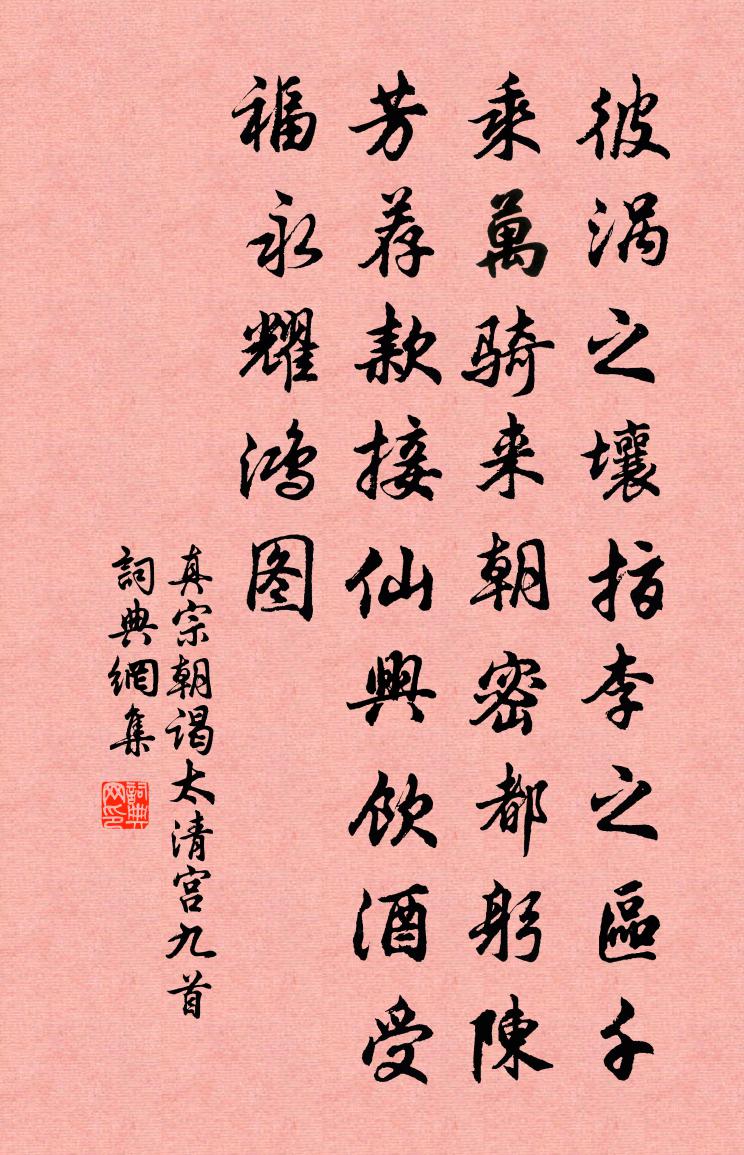 彼涡之壤指李之區千
乘萬骑来朝密都躬陳
芳荐款接仙興飲酒受
福永耀鸿图
真宗朝谒太清宫九首
詞典網集
詞典网印